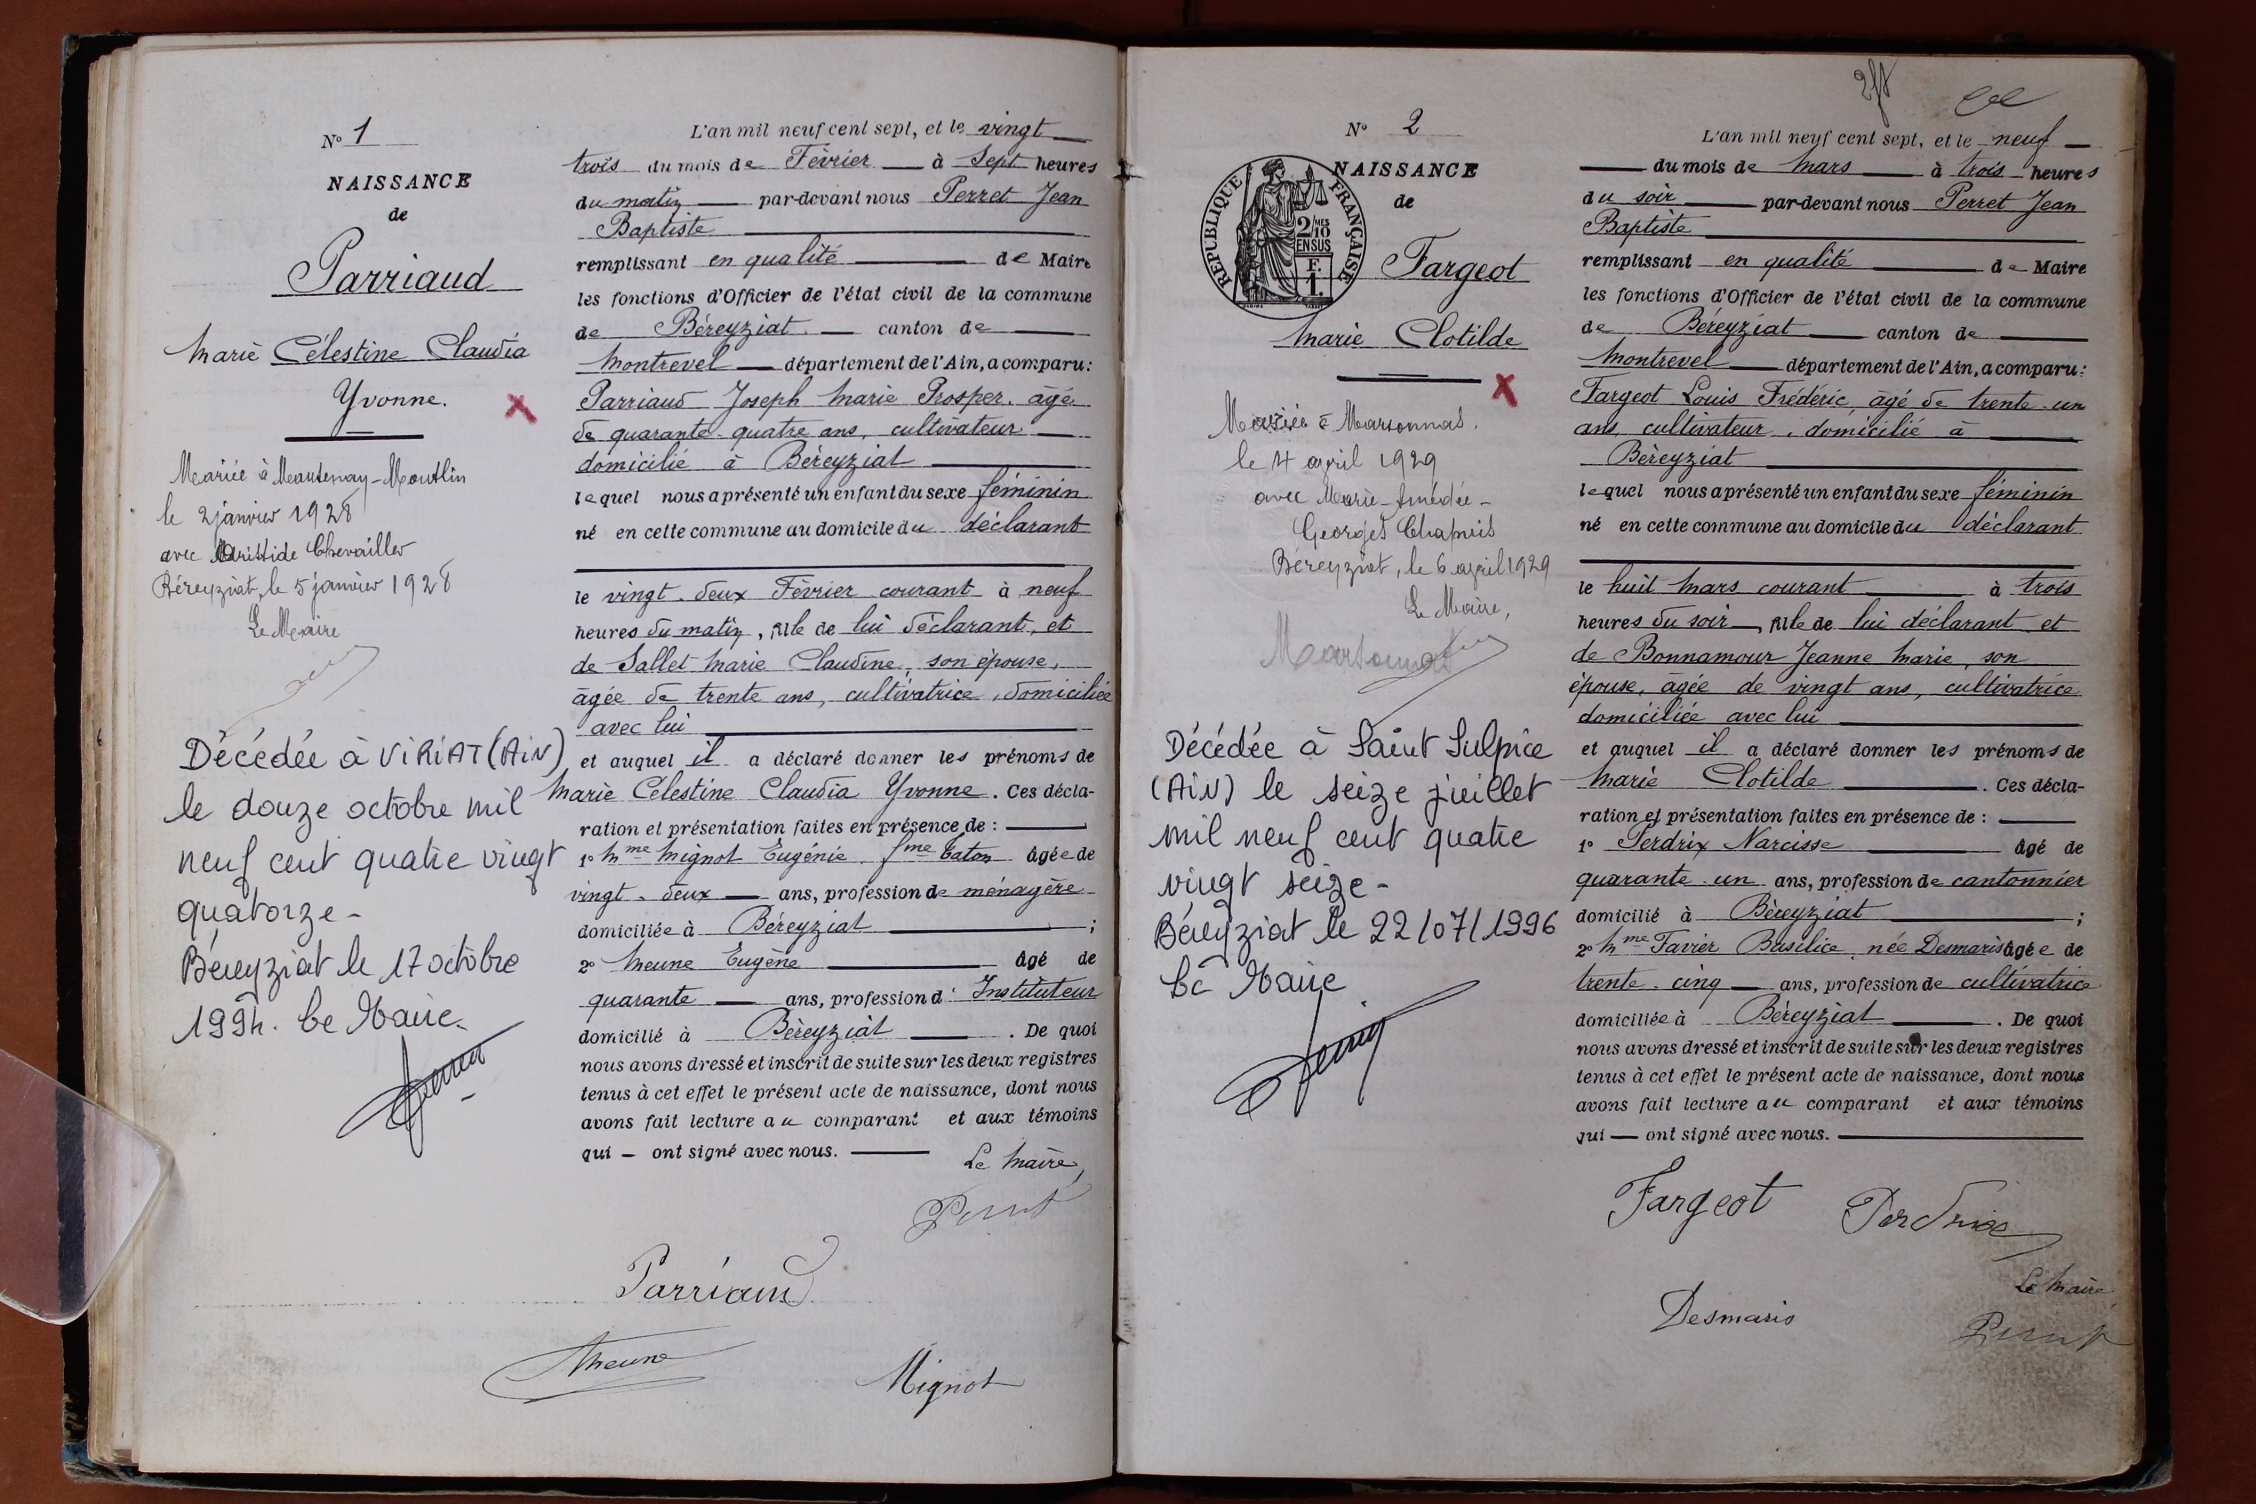 N° 1
NAISSANCE
de
Parriaud
Marie Célestine Claudia
Yvonne.
Mariée à Mantenay-Montlin
le 2 janvier 1928
avec Aristide Chevailler
Béreyziat, le 5 janvier 1928
Le Maire
Décédée à VIRIAT (AIN)
le douze octobre mil
neuf cent quatre vingt
quatorze -
Béreyziat le 17 octobre
1994. Le Maire.
L'an mil neuf cent sept, et le vingt
trois du mois de Février à Sept heures
du matin par-devant nous Perret Jean
Baptiste
remplissant en qualité de Maire
les fonctions d'Officier de l'état civil de la commune
de Béreyziat canton de
Montrevel département de l'Ain, a comparu:
Parriaud Joseph Marie Prosper, âgé
de quarante-quatre ans, cultivateur
domicilié à Béreyziat
lequel nous a présenté un enfant du sexe féminin
né en cette commune au domicile du déclarant
le vingt-deux Février courant à neuf
heures du matin, fille de lui déclarant, et
de Sallet Marie Claudine, son épouse,
âgée de trente ans, cultivatrice, domiciliée
avec lui
et auquel il a déclaré donner les prénoms de
Marie Célestine Claudia Yvonne. Ces décla-
ration et présentation faites en présence de :
1° Mme Mignot Eugénie fme Caton âgée de
vingt-deux ans, profession de ménagère
domiciliée à Béreyziat ;
2° Meune Eugène âgé de
quarante ans, profession d' Instituteur
domicilié à Béreyziat . De quoi
nous avons dressé et inscrit de suite sur les deux registres
tenus à cet effet le présent acte de naissance, dont nous
avons fait lecture au comparant et aux témoins
qui - ont signé avec nous.
Le Maire,
Perret
Parriaud
Meune
Mignot
N° 2
NAISSANCE
de
RÉPUBLIQUE FRANÇAISE
2/10 MES
EN SUS
F.
1.
Fargeot
Marie Clotilde
Mariée à Marsonnas.
le 4 avril 1929
avec Marie-Amédée-
Georges Chapuis
Béreyziat, le 6 avril 1929
Le Maire,
Décédée à Saint Sulpice
(AIN) le seize juillet
mil neuf cent quatre
vingt seize -
Béreyziat le 22/07/1996
Le Maire
L'an mil neuf cent sept, et le neuf
du mois de Mars à trois heures
du soir par-devant nous Perret Jean
Baptiste
remplissant en qualité de Maire
les fonctions d'Officier de l'état civil de la commune
de Béreyziat canton de
Montrevel département de l'Ain, a comparu:
Fargeot Louis Frédéric, âgé de trente-un
ans, cultivateur, domicilié à
Béreyziat
lequel nous a présenté un enfant du sexe féminin
né en cette commune au domicile du déclarant
le huit Mars courant à trois
heures du soir, fille de lui déclarant et
de Bonnamour Jeanne Marie, son
épouse, âgée de vingt ans, cultivatrice
domiciliée avec lui
et auquel il a déclaré donner les prénoms de
Marie Clotilde . Ces décla-
ration et présentation faites en présence de :
1° Perdrix Narcisse âgé de
quarante-un ans, profession de cantonnier
domicilié à Béreyziat ;
2° Mme Tavier Basilice, née Desmaris âgée de
trente-cinq ans, profession de cultivatrice
domiciliée à Béreyziat . De quoi
nous avons dressé et inscrit de suite sur les deux registres
tenus à cet effet le présent acte de naissance, dont nous
avons fait lecture au comparant et aux témoins
qui - ont signé avec nous.
Fargeot
Perdrix
Le Maire,
Desmaris
Perret